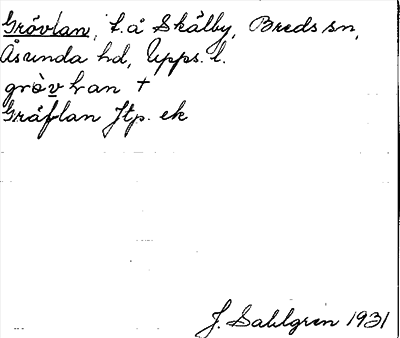 Grövlan, t. å Skälby, Breds sn,
Åsunda hd, Upps. l.
grö̀v lan †
Gräflan Jtp. ek
J. Sahlgren 1931